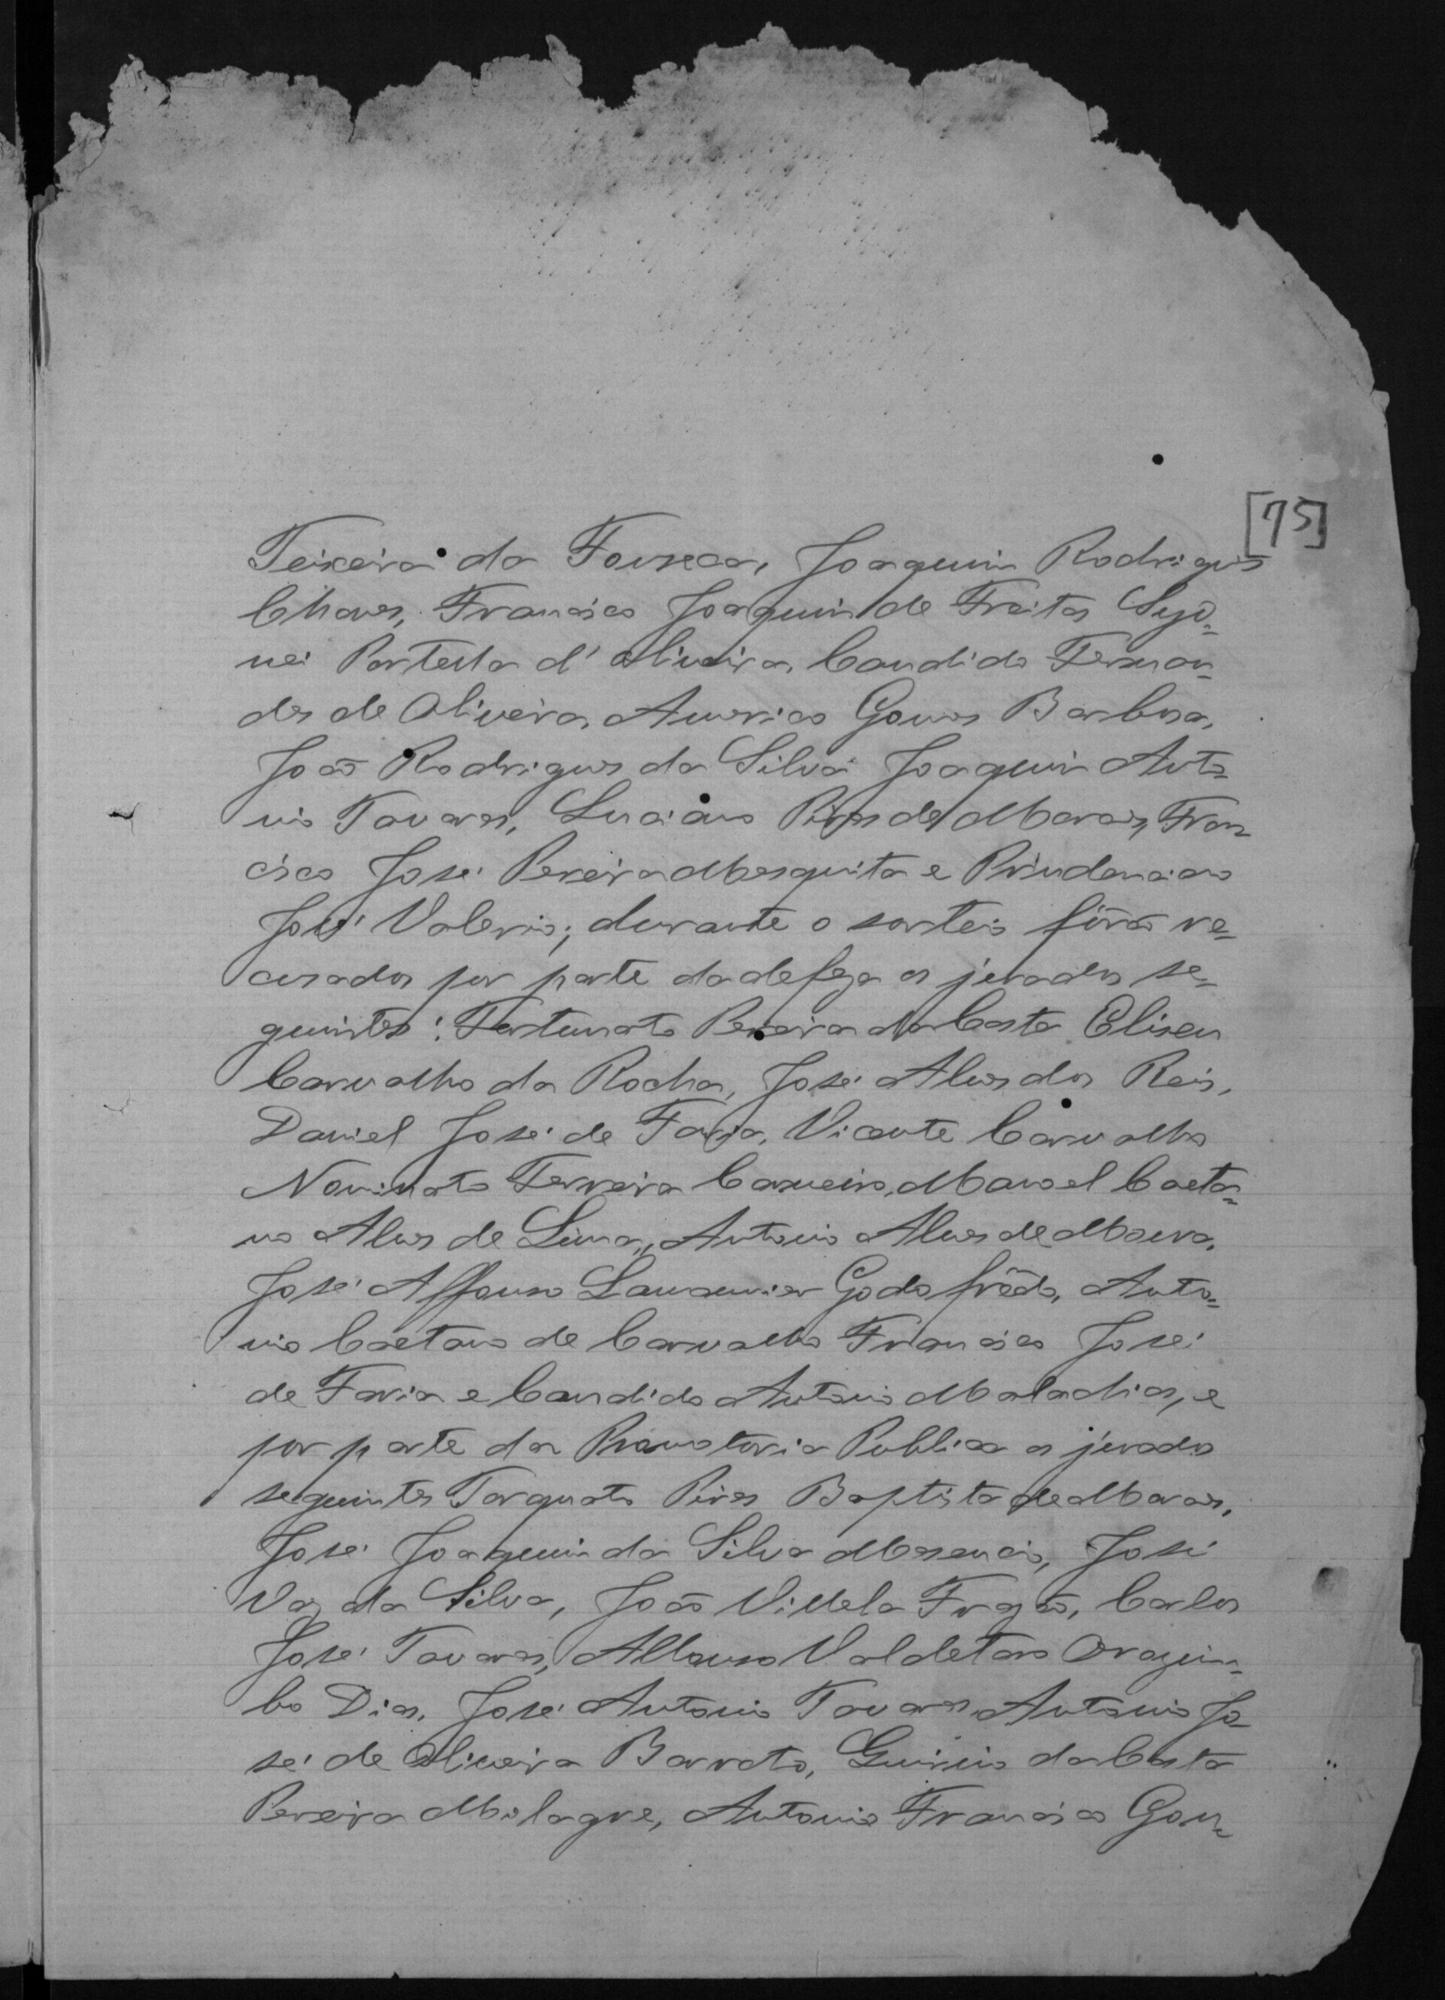 [75]
Teixeira da Fonseca, Joaquim Rodrigues
Chaves, Francisco Joaquim de Freitas
d'Oliveira, Candido Fernan-
des de Oliveira, Americo Gomes Barbosa,
João Rodrigues da Silva Joaquim Anto-
nio Tavares, Luciano Pires de Moraes, Fran-
cisco José Pereira Mesquita e Prudenciano
José Valerio; durante o sorteio fôrão re-
cusados por parte da defeza os jurados se-
guintes: Fortunato Pereira da Costa Eliseu
Carvalho da Rocha, José Alves dos Reis,
Daniel José de Faria, Vicente Carvalho
Ferreira Carneiro, Manoel Caeta-
no Alves de Lima, Antonio Alves de Moura,
José Affonso Godofrêdo, Anto-
nio Caetano de Carvalho Francisco José
de Faria e Candido Antonio Malachias, e
por parte da Promotoria Publica os jurados
seguintes Torquato Pires Baptista de Moraes,
José Joaquim da Silva José
Vaz da Silva, João Villela Carlos
José Tavares, Valdetaro Orozim-
bo Dias, José Antonio Tavares, Antonio Jo-
sé de Oliveira Barreto, da Costa
Pereira Antonio Francisco Gon-